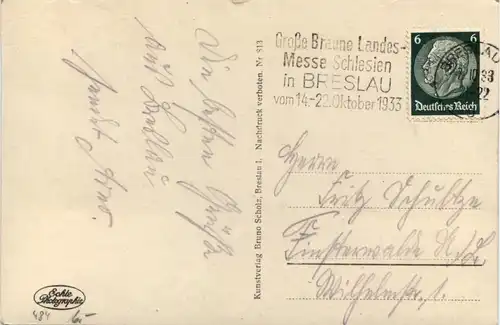 Die besten Grüße
aus Breslau
sendet
Große Braune Landes-
Messe Schlesien
in BRESLAU
vom 14.-22. Oktober 1933
BRESLAU
6 6
Deutsches Reich
Herrn
Fritz Schultze
Finsterwalde N./L.
Wilhelmstr. 1.
Kunstverlag Bruno Scholz, Breslau 1. Nachdruck verboten. Nr. 913
Echte
Photographie
484